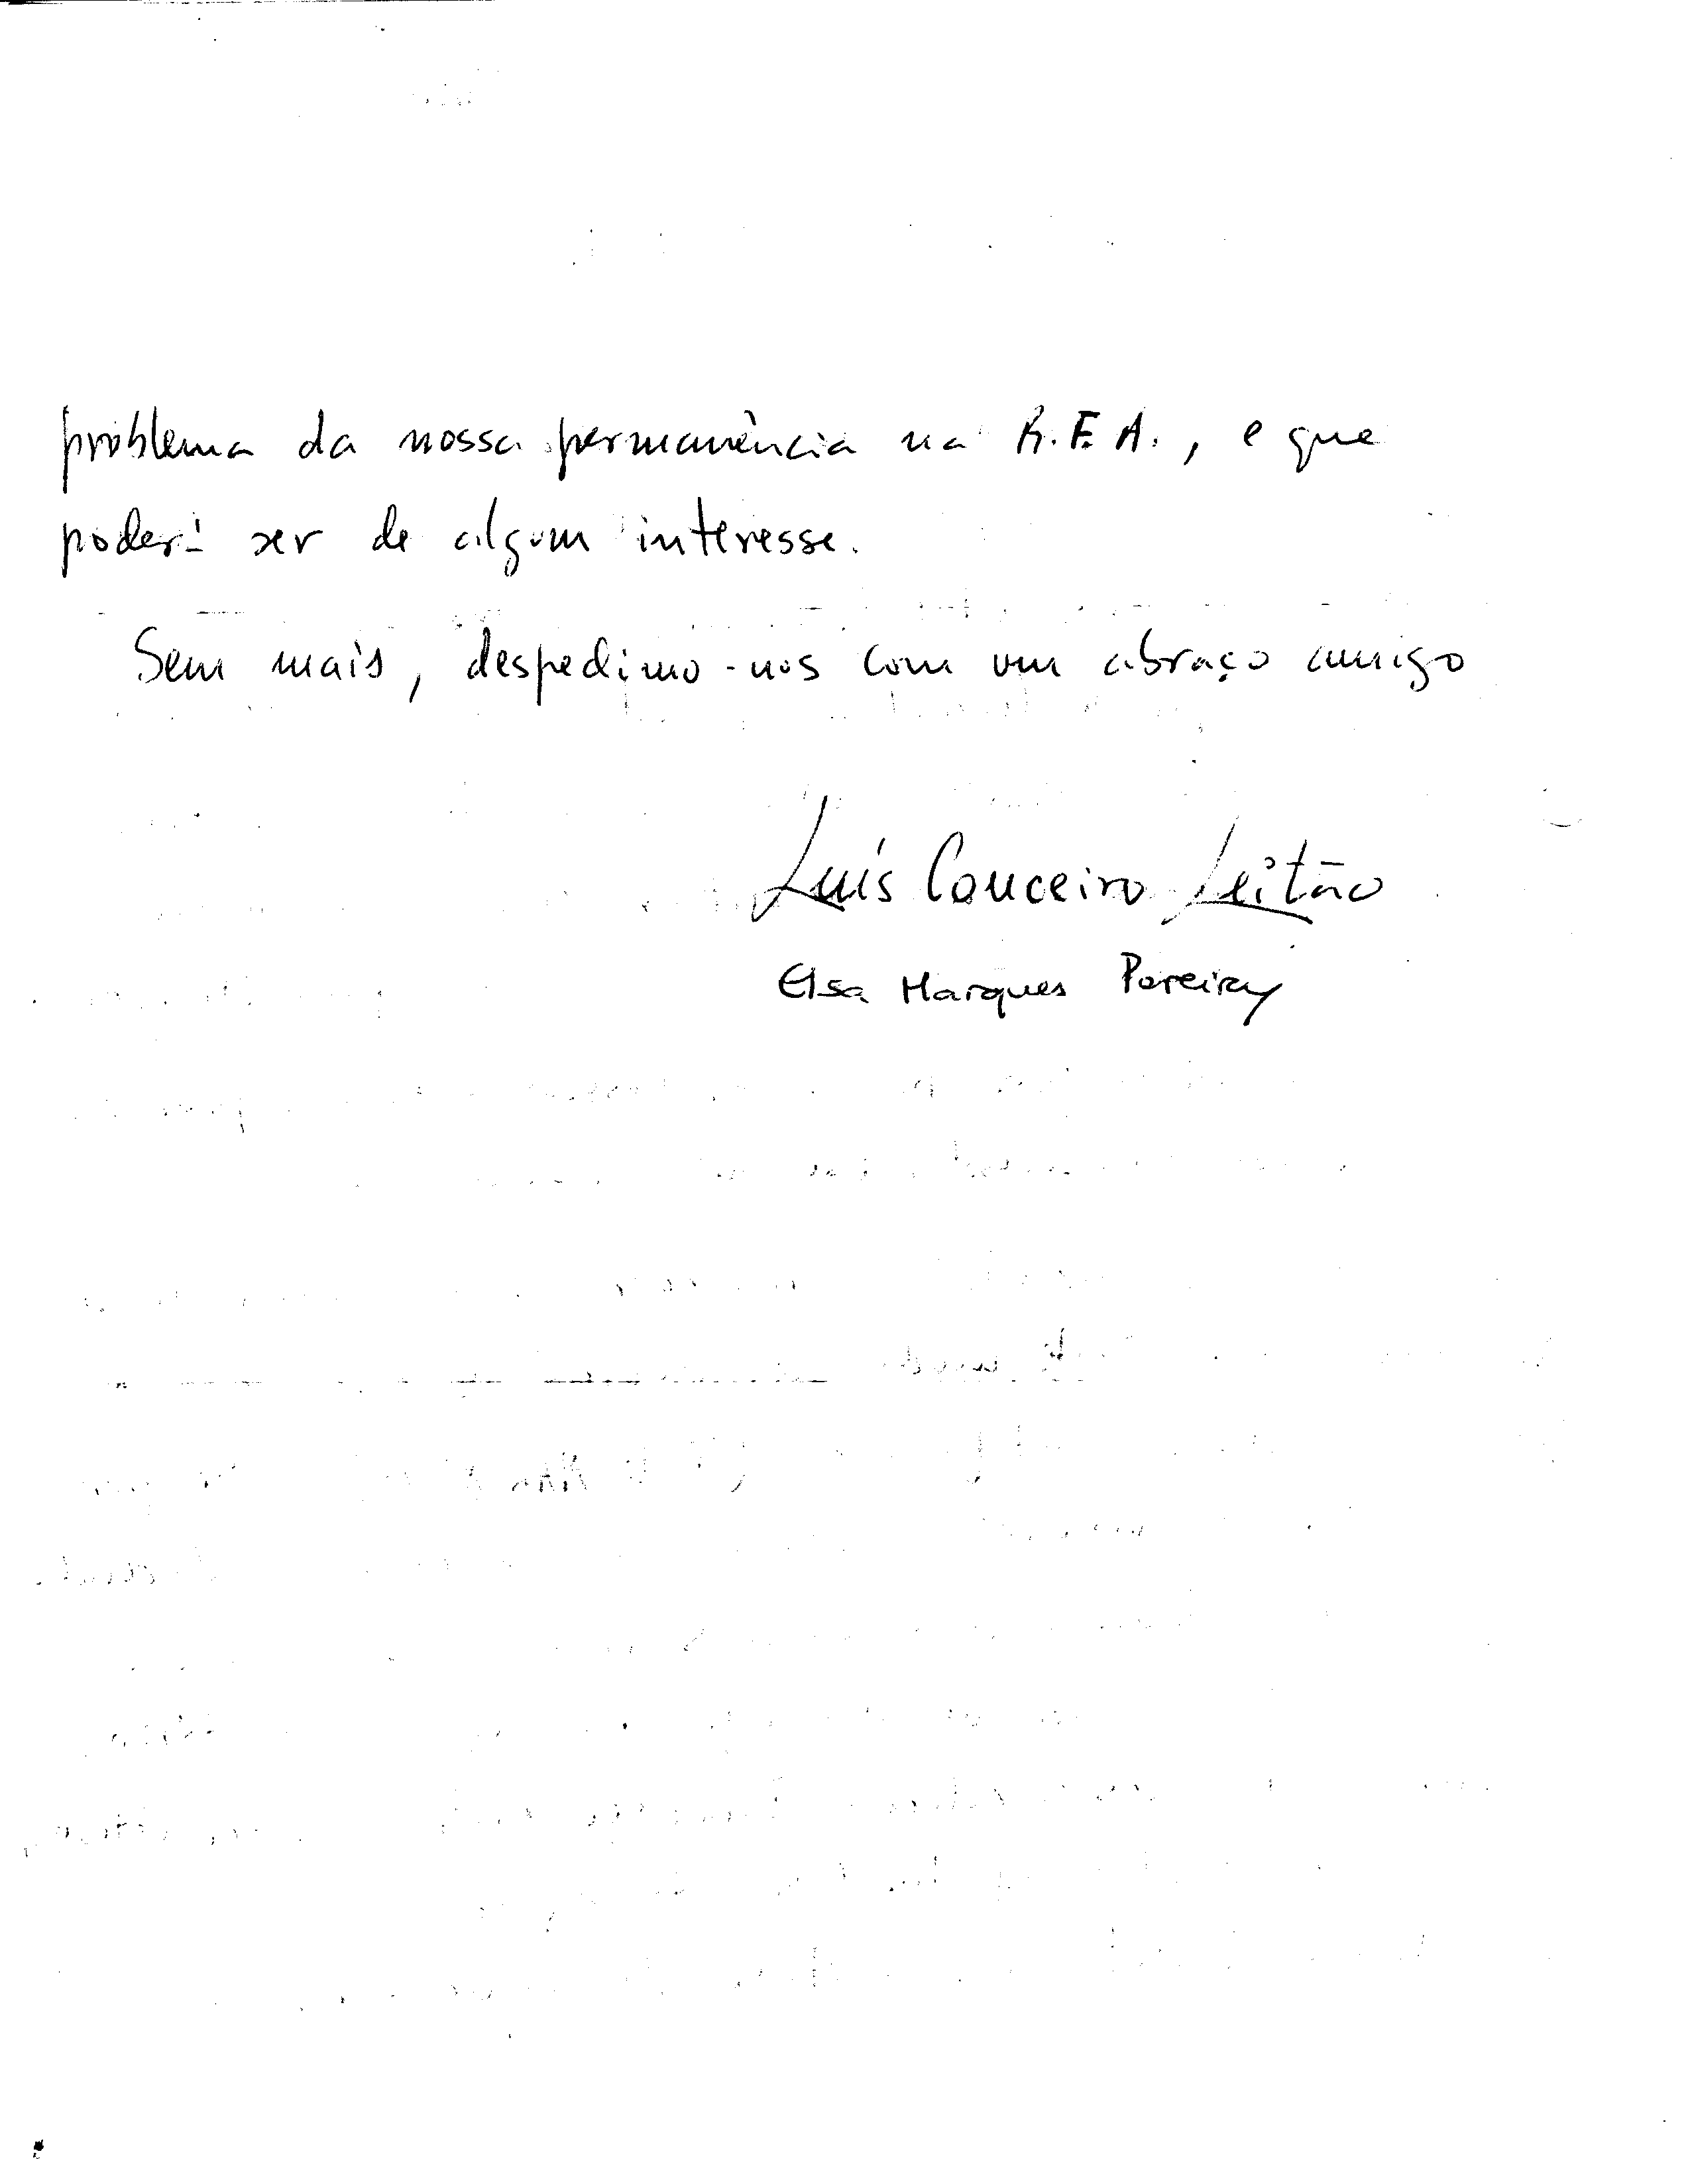 problema da nossa permanência na R.F.A., e que
poderá ser de algum interesse.
Sem mais, despedimo-nos com um abraço amigo
Luís Couceiro Leitão
Elsa Marques Pereira